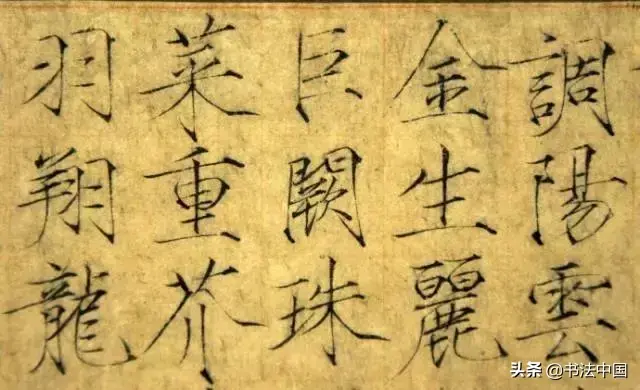 調陽雲
金生麗
巨闕珠
菜重芥
羽翔龍
头条 @书法中国